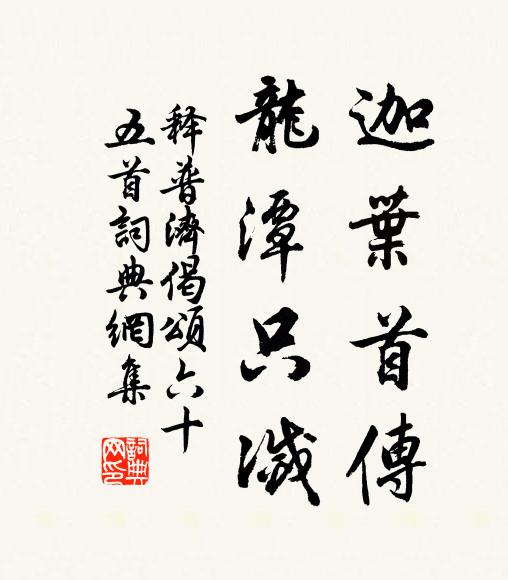 迦葉首傳
龍潭只滅
釋普濟偈頌六十
五首詞典網集
詞典
网印